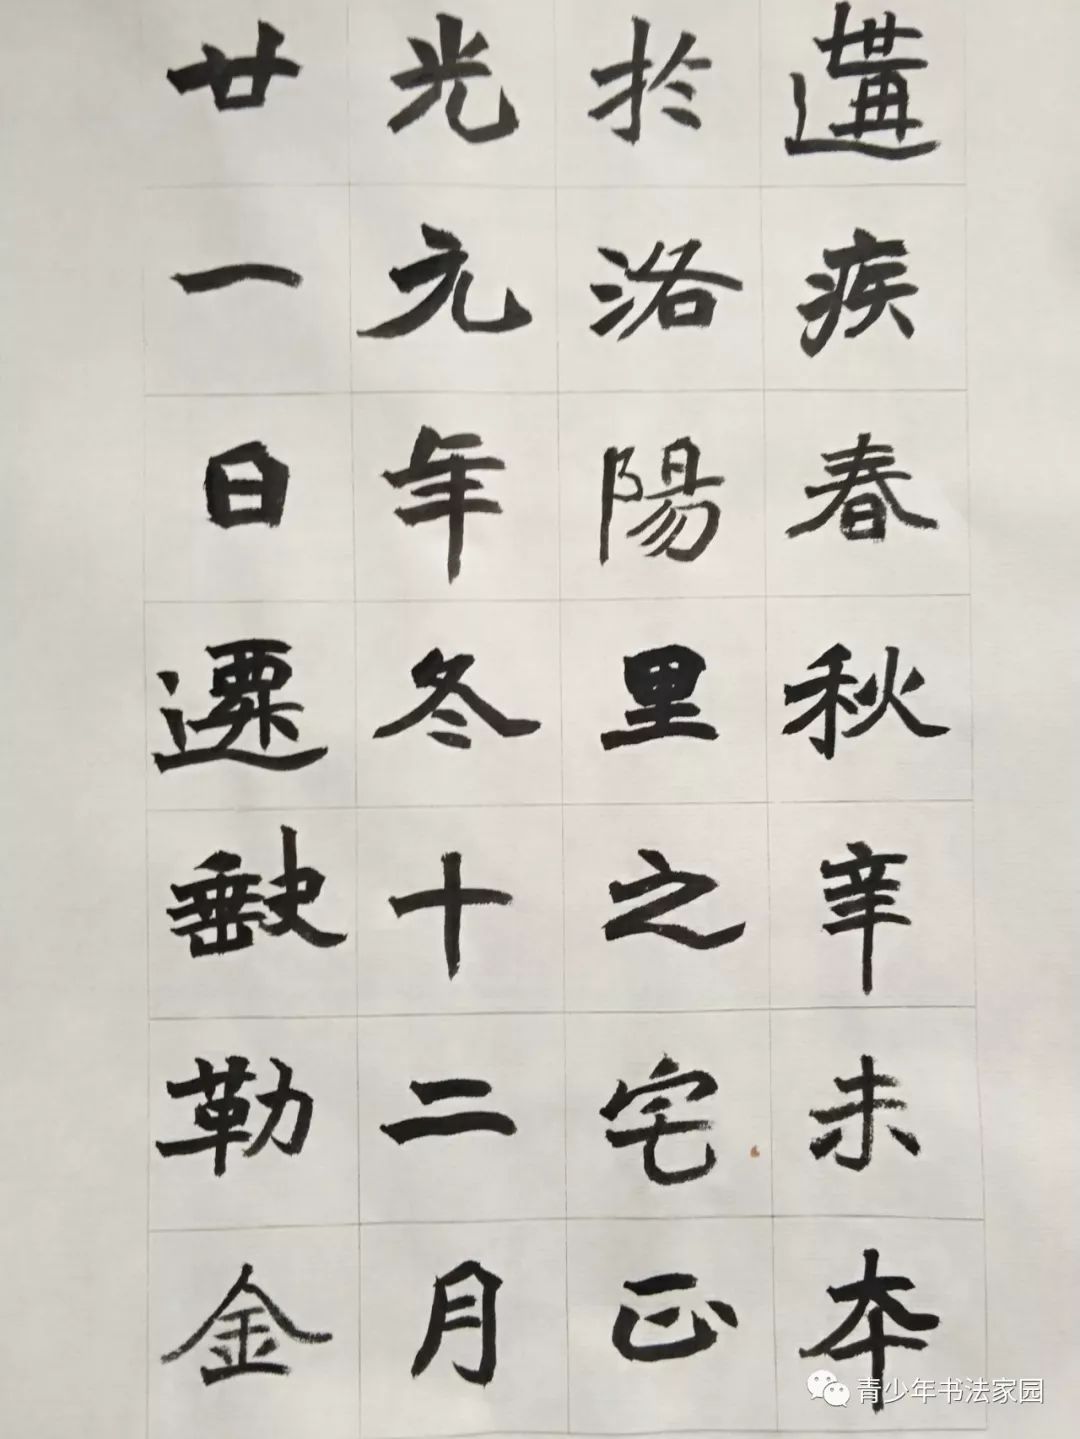 遘疾春秋辛未卒
於洛陽里之宅正
光元年冬十二月
廿一日遷勒金
青少年书法家园